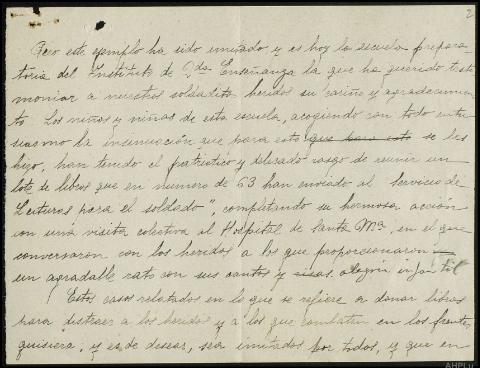 2
Pero este ejemplo ha sido imitado y es hoy la escuela prepara-
toria del Instituto de 2da Enseñanza la que ha querido testi
moniar a nuestros soldaditos heridos su cariño y agradecimien
to. Los niños y niñas de esta escuela, acogiendo con todo entu
siasmo la insinuación que para esto que para esto se les
hizo, han tenido el patriotico y delicado rasgo de reunir un
lote de libros que en numero de 63 han enviado al Servicio de
Lecturas para el soldado", completando su hermosa acción
con una visita colectiva al Hospital de Santa Mª, en el que
conversaron con los heridos a los que proporcionaron
un agradable rato con sus cantos y risas alegria infantil
Estos casos relatados en lo que se refiere a donar libros
para distraer a los heridos y a los que combaten en los frentes
quisiera, y es de desear, sea imitados por todos, ya que en
AHPLu